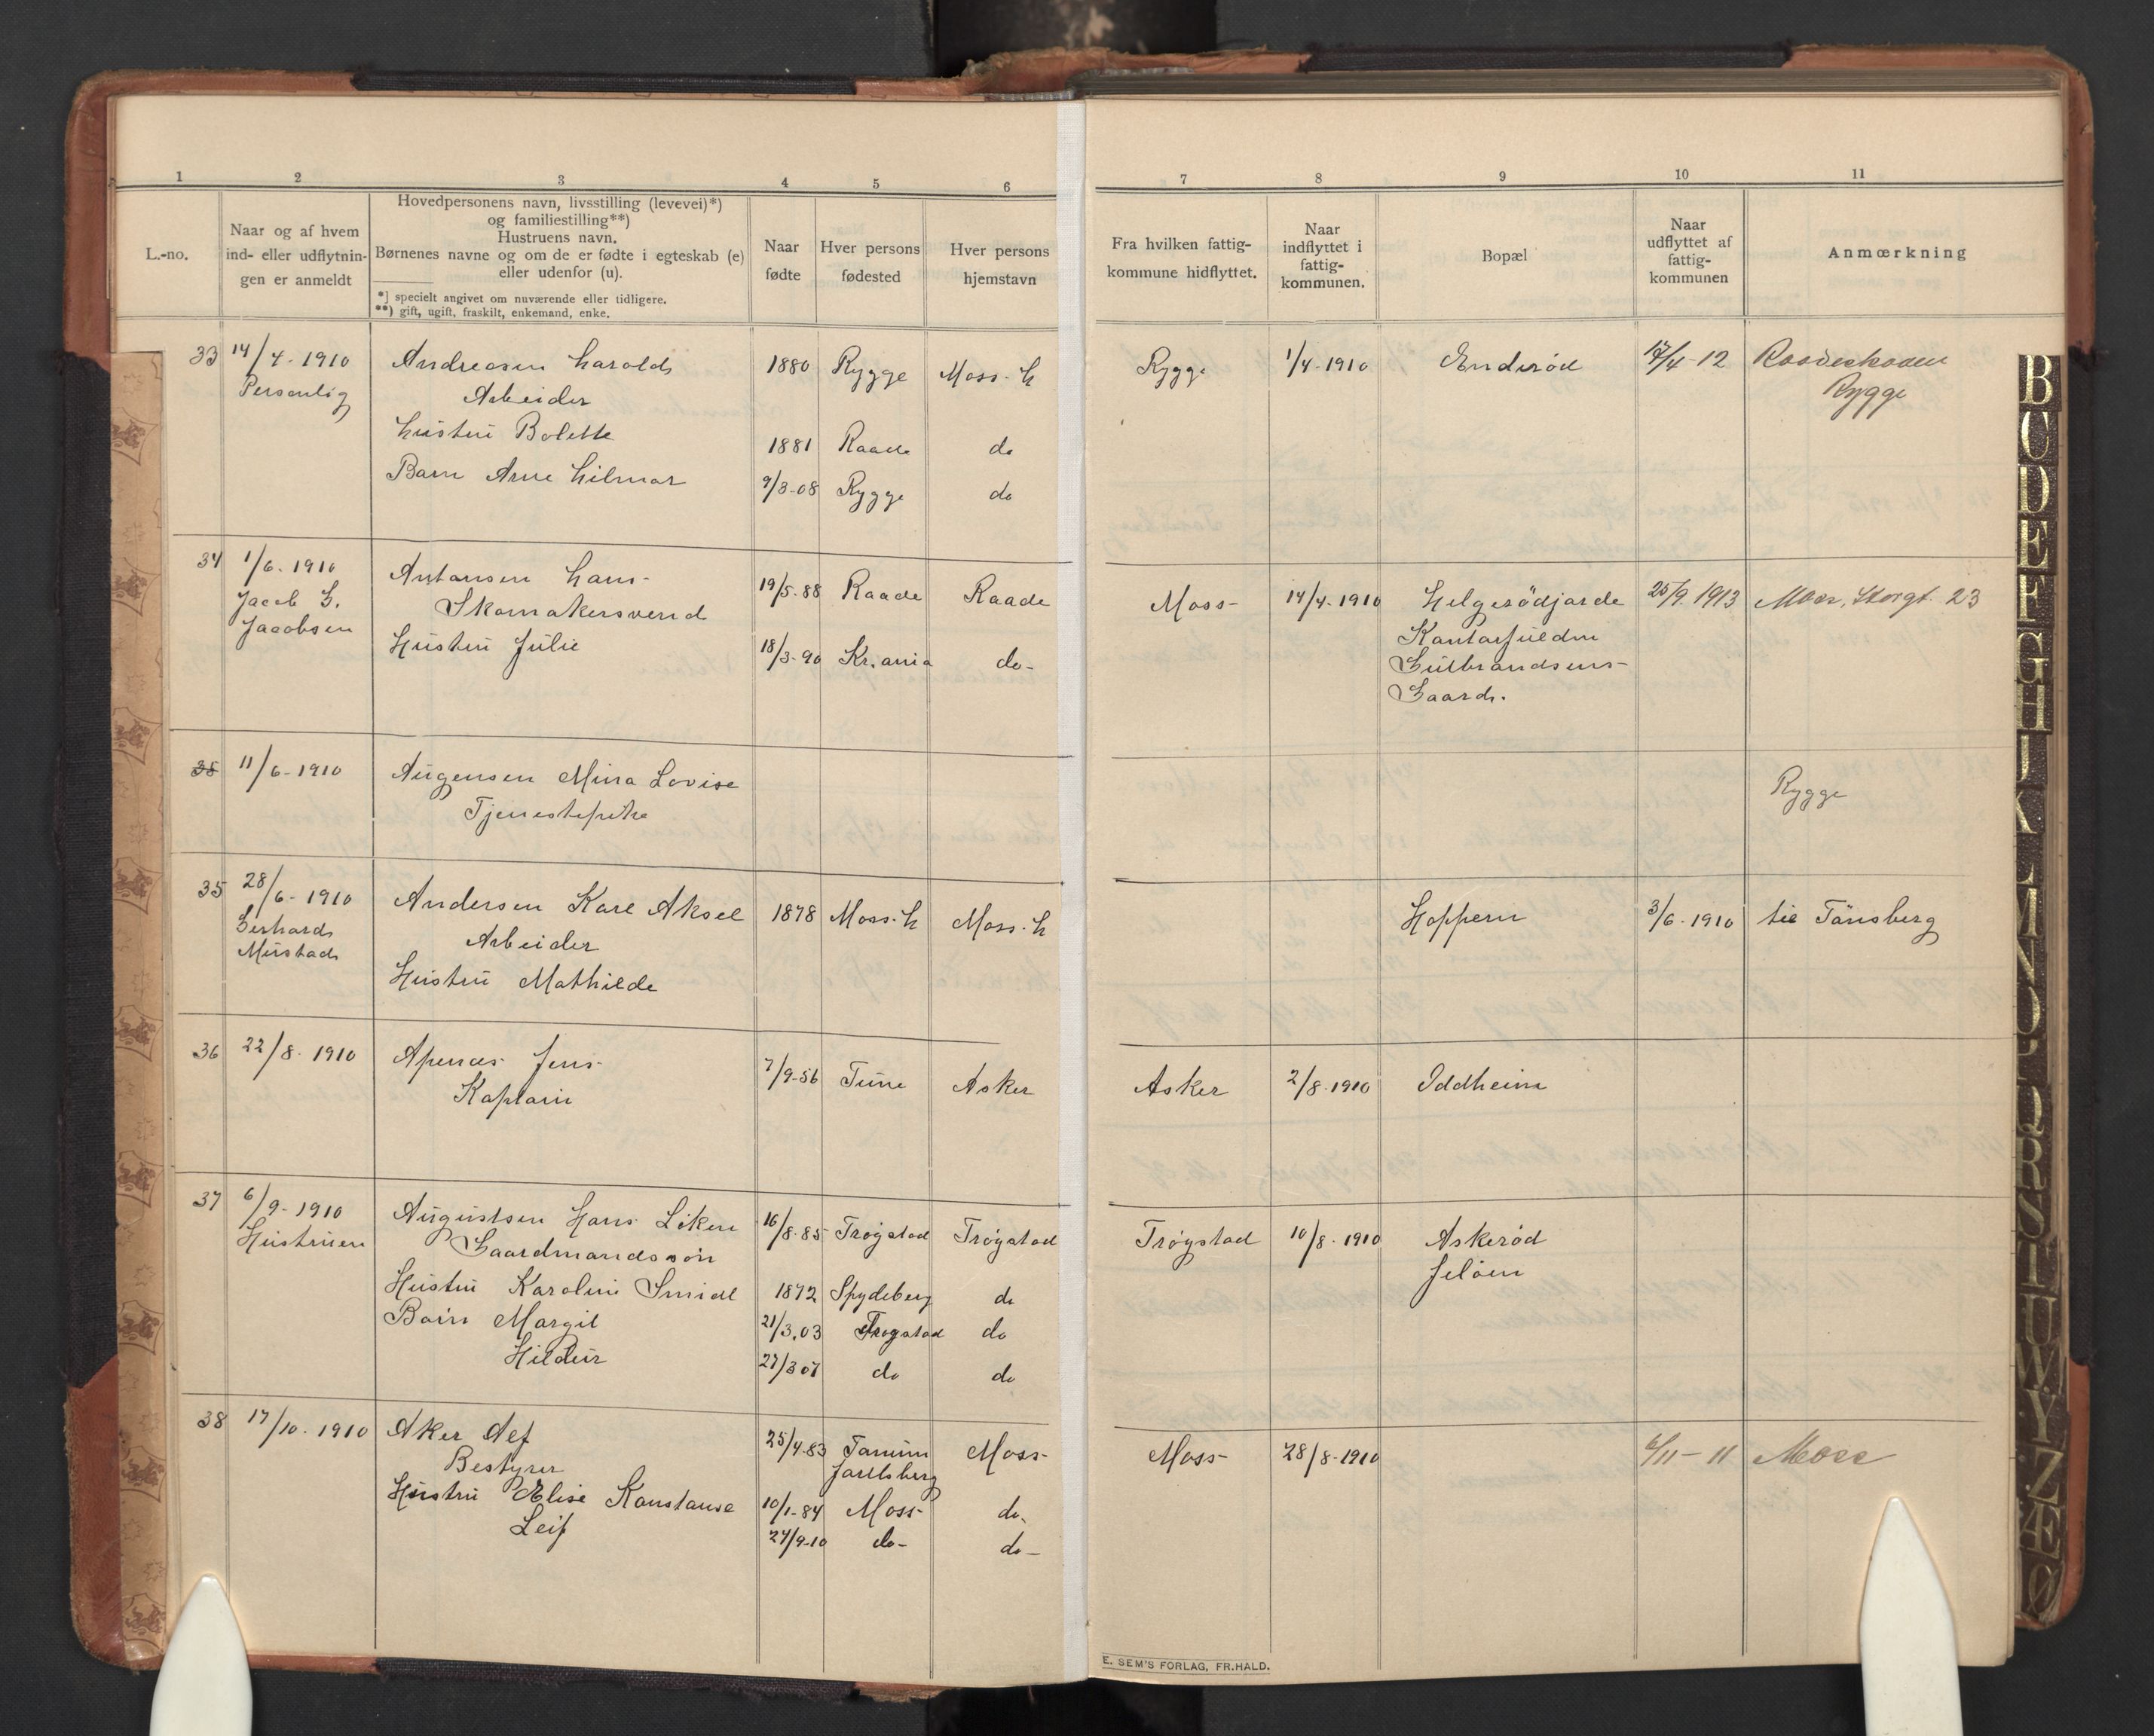 1 2 3 4 5 6 7 8 9 10 11
L.-no.
Naar og af hvem
ind- eller udflytnin-
gen er anmeldt
Hovedpersonens navn, livsstilling (levevei)*)
og familiestilling**)
Hustruens navn.
Børnenes navne og om de er fødte i egteskab (e)
eller udenfor (u).
*) specielt angivet om nuværende eller tidligere.
**) gift, ugift, fraskilt, enkemand, enke.
Naar
fødte
Hver persons
fødested
Hver persons
hjemstavn
Fra hvilken fattig-
kommune hidflyttet.
Naar
indflyttet i
fattig-
kommunen.
Bopæl
Naar
udflyttet af
fattig-
kommunen
Anmœrkning
33 14/4-1910 Andreasen Harald 1880 Rygge Moss-h Rygge 1/4-1910 Enderød 17/4-12
Personlig Arbeider Rygge
Hustru Bolette 1881 Raade do
Barn Arne Hilmar 9/3-08 Rygge do
34 1/6-1910 Antonsen Hans- 19/5-88 Raade Raade Moss- 14/4-1910 Helgerødjorde 25/9 1913 Moss, Storgt. 23
Jacob G. Skomakersvend Kantarfuldm
Jacobsen Hustru Julie 18/3-90 Kr.ania do- Gulbrandsens-
Gaard.
35 11/6-1910 Augensen Mina Lovise Rygge
Tjenestepike
35 28/6-1910 Andersen Karl Aksel 1878 Moss-h Moss-h Hoppern 3/6-1910 til Tønsberg
Gerhard Arbeider
Mustad Hustru Mathilde
36 22/8-1910 Apenæs Jens- 7/9-56 Tune Asker Asker 2/8-1910 Oddheim
Kaptain
37 6/9-1910 Augustsen Hans Løken 16/8-85 Trøgstad Trøgstad Trøgstad 10/8-1910 Askerød
Hustruen Gaardmandssøn Jeløen
Hustru Karoline Smidt 1872 Spydeberg do
Børn Margit 21/3.03 Trøgstad do
Hildur 27/3 07 do do
38 17/10-1910 Aker Alf 25/4-83 Tanum Moss- Moss- 28/8-1910 6/11-11 Moss
Bestyrer Jarlsberg
Hustru Elise Konstanse 10/1-84 Moss- do-
Leif 27/9-10 do- do-
E. SEM'S FORLAG, FR.HALD.
B
C
D
E
F
G
H
I
K
L
M
N
O
P
Q
R
S
T
U
W
Y
Z
Æ
Ø